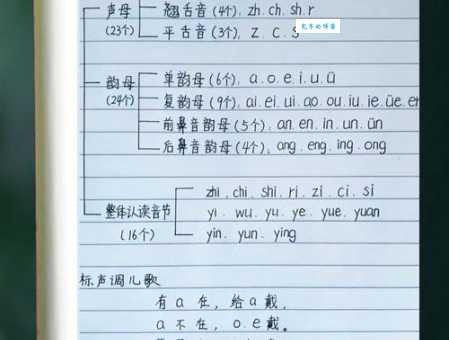 声母
(23个)
翘舌音(4个), zh. ch. sh. r
平舌音(3个), z. c. s
韵母
(24个)
单韵母(6个), a. o. e. i. u. ü
复韵母(9个), ai. ei. ui. ao. ou. iu. ie. üe. er
前鼻音韵母(5个), an. en. in. un. ün
后鼻音韵母(4个), ang. eng. ing. ong
整体认读音节
(16个)
zhi. chi. shi. ri. zi. ci. si
yi. wu. yu. ye. yue. yuan
yin. yun. ying
标声调儿歌
有a在, 给a戴,
a不在, o.e戴。